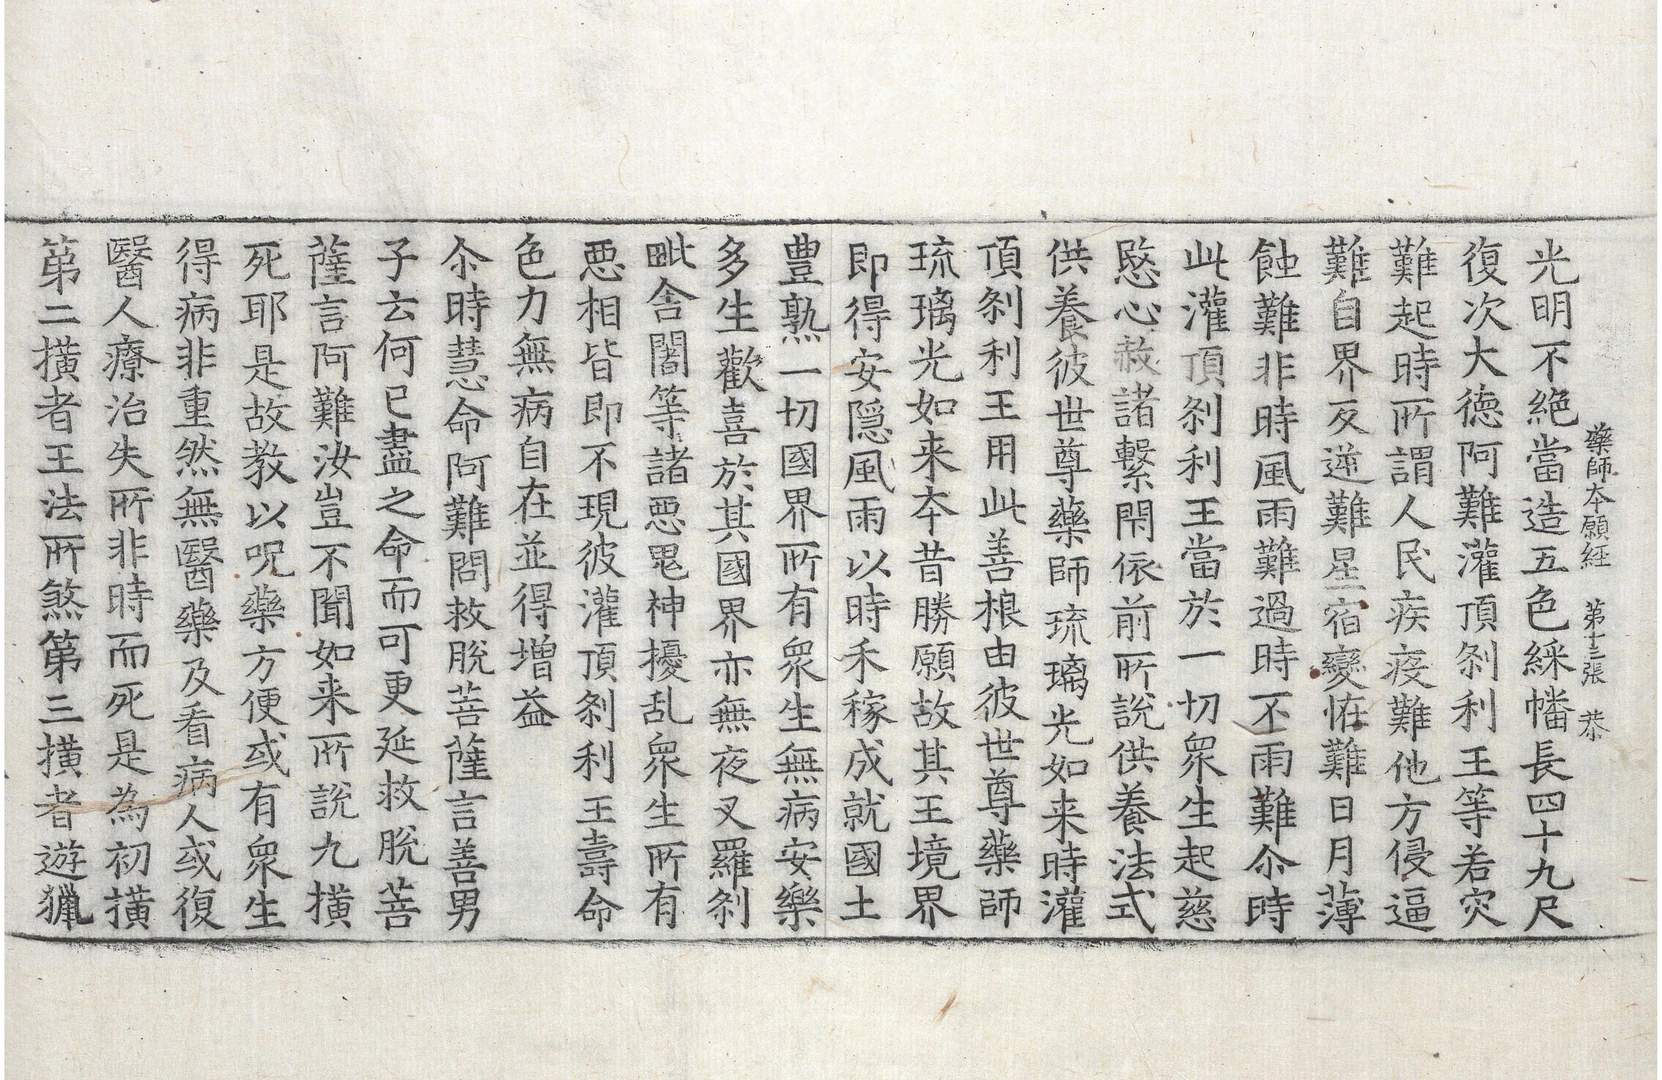 藥師本願經 第十三張 恭
光明不絶當造五色綵幡長四十九尺
復次大德阿難灌頂剎利王等若灾
難起時所謂人民疾疫難他方侵逼
難自界反逆難星宿變恠難日月薄
蝕難非時風雨難過時不雨難尒時
此灌頂剎利王當於一切衆生起慈
愍心赦諸繫閇依前所說供養法式
供養彼世尊藥師琉璃光如来時灌
頂剎利王用此善根由彼世尊藥師
琉璃光如来夲昔勝願故其王境界
即得安隠風雨以時禾稼成就國土
豊熟一切國界所有衆生無病安樂
多生歡喜於其國界亦無夜叉羅剎
毗舍闍等諸惡鬼神擾乱衆生所有
惡相皆即不現彼灌頂剎利王壽命
色力無病自在並得增益
尒時慧命阿難問救脫菩薩言善男
子云何已盡之命而可更延救脫菩
薩言阿難汝豈不聞如来所說九橫
死耶是故教以呪藥方便或有衆生
得病非重然無醫藥及看病人或復
醫人療治失所非時而死是為初橫
第二橫者王法所煞第三橫者遊獵